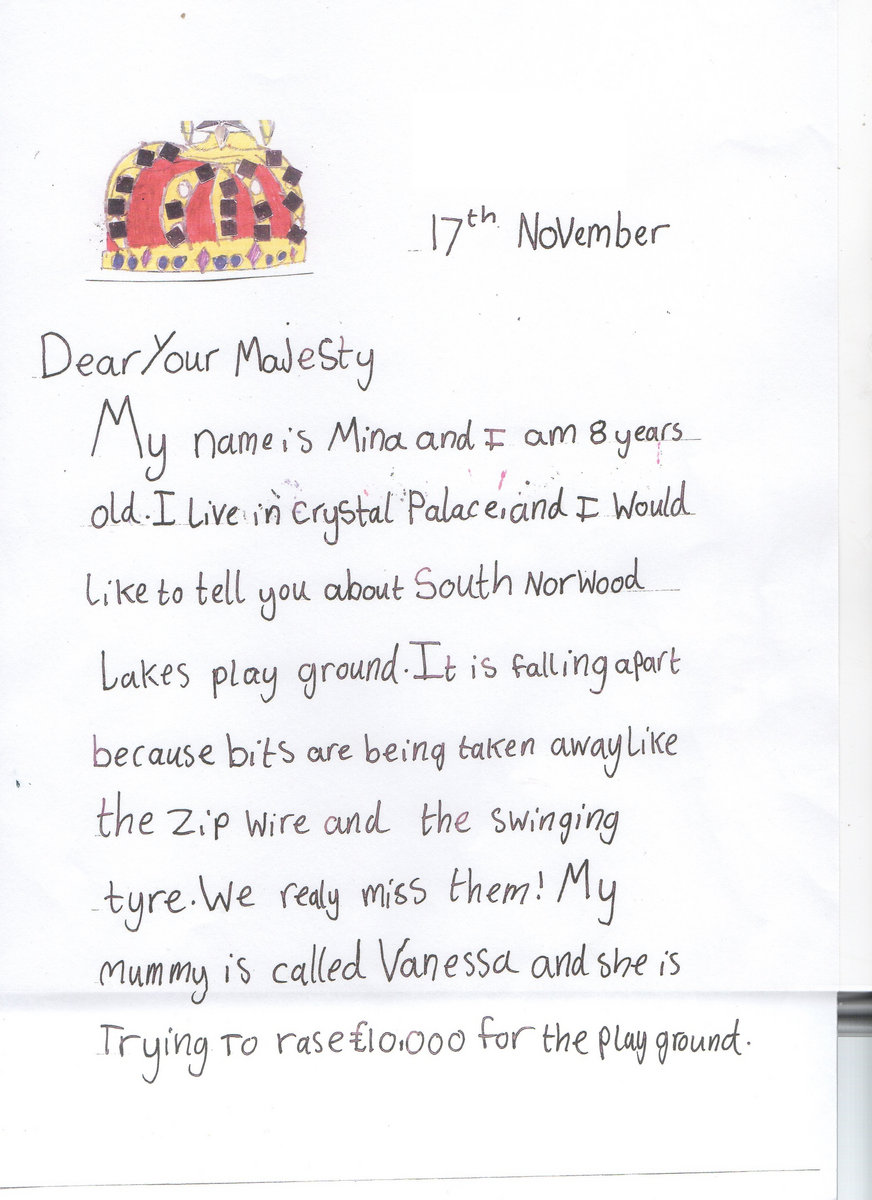 17th November
Dear Your Majesty
My name is Mina and I am 8 years
old. I Live in Crystal Palace, and I Would
like to tell you about South Norwood
Lakes play ground. It is falling apart
because bits are being taken away like
the Zip Wire and the swinging
tyre. We realy miss them! My
mummy is called Vanessa and she is
Trying To rase £10,000 for the play ground.